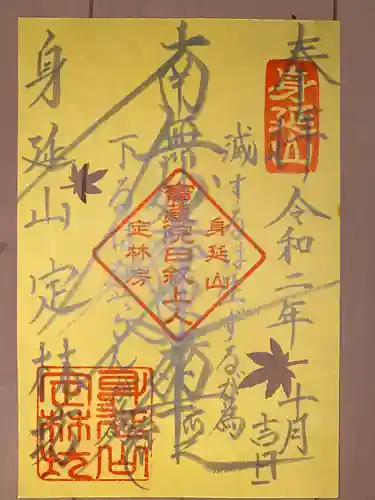 奉拝 令和二年十月吉日
身延山
滅するは生ずるが為
南無妙法蓮華経
身延山
寶蔵院日叙上人
定林房
下る
身延山定林坊
身延山定林坊